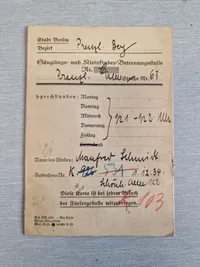 Stadt Berlin
Bezirk Prenzl. Berg
Säuglings- und Kleinkinder-Betreuungsstelle
Nr.
Prenzl. Allee 63
Sprechstunden: Montag
Dienstag
Mittwoch
Donnerstag
Freitag
Sonnabend
121-122 Uhr
Name des Kindes: Manfred Schmidt
Aufnahme-Nr.
1.12.34
Diese Karte ist bei jedem Besuch
der Fürsorgestelle mitzubringen.
103